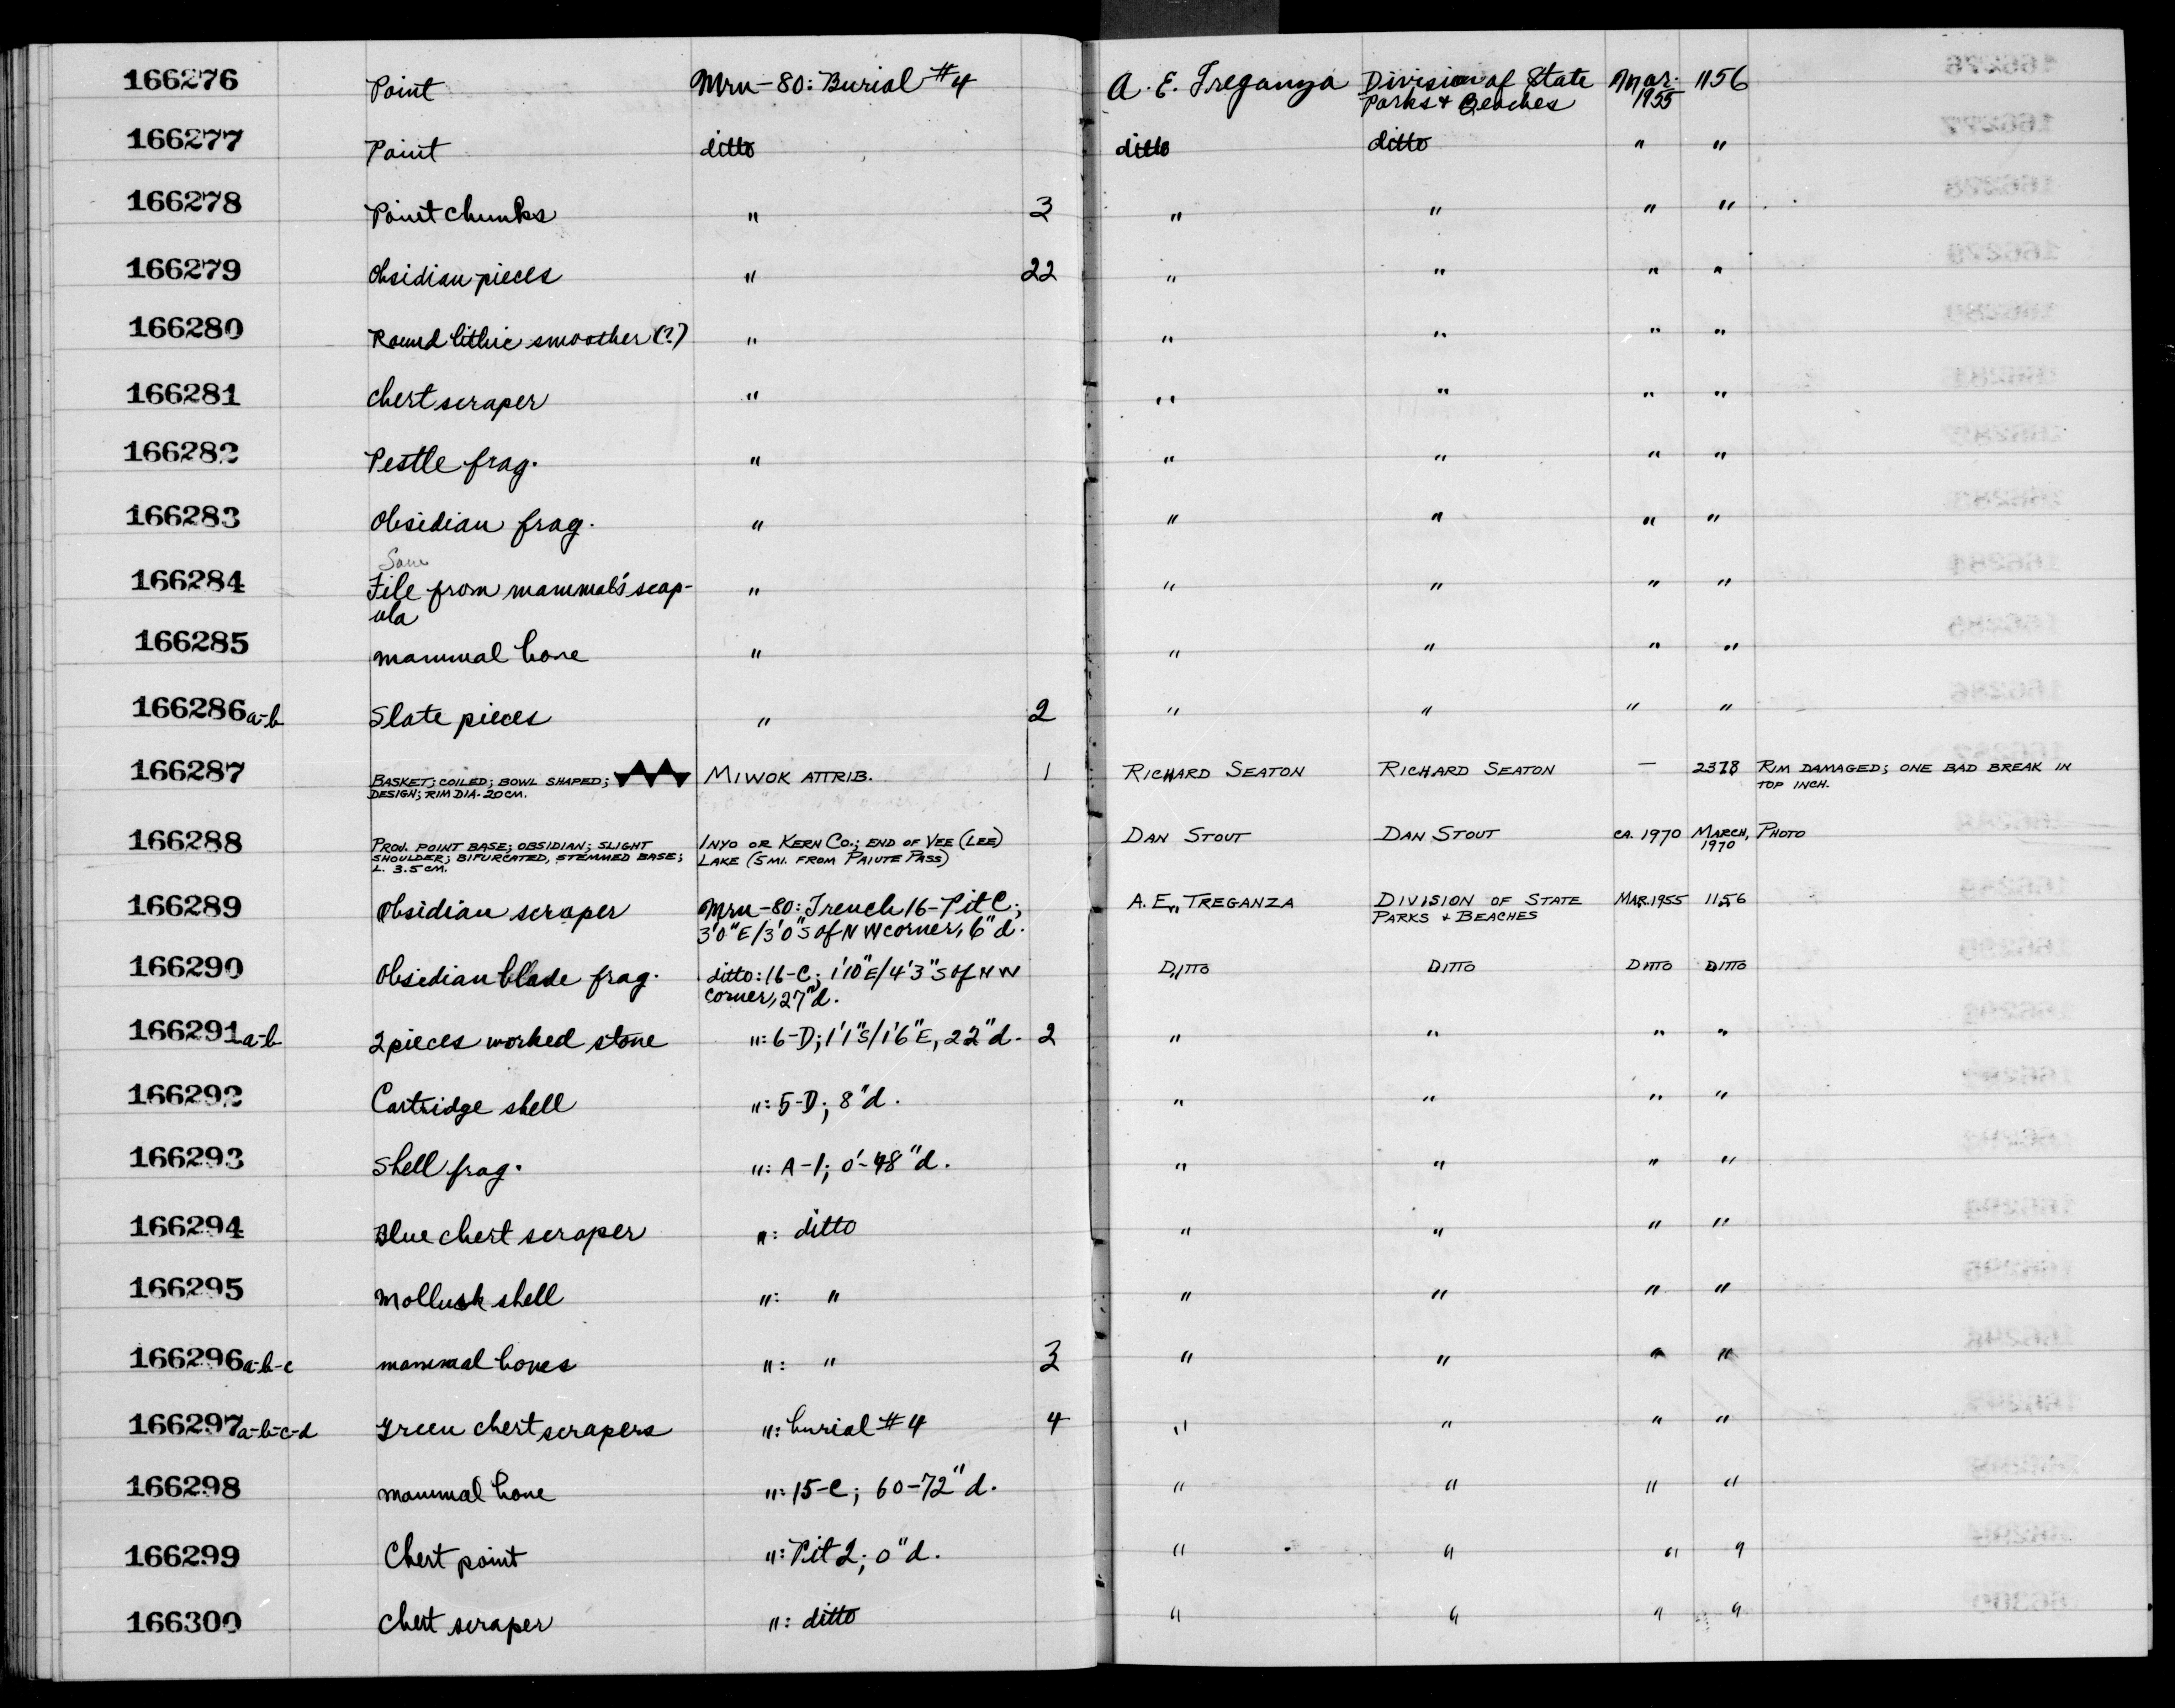 166276 Point Mrn-80: Burial #4 A. E. Treganza Division of State Mar. 1156
Parks + Beaches 1955
166277 Point ditto ditto ditto " "
166278 Point chunks " 3 " " " "
166279 Obsidian pieces " 22 " " " "
166280 Round lithic smoother (?) " " " " "
166281 Chert scraper " " " " "
166282 Pestle frag. " " " " "
166283 Obsidian frag. " " " " "
166284 File from mammal's scap- " " " " "
ula
166285 mammal bone " " " " "
166286a-b Slate pieces " 2 " " " "
166287 BASKET; COILED; BOWL SHAPED; MIWOK ATTRIB. 1 RICHARD SEATON RICHARD SEATON — 2378 RIM DAMAGED; ONE BAD BREAK IN
DESIGN; RIM DIA. 20 CM. TOP INCH.
166288 PROJ. POINT BASE; OBSIDIAN; SLIGHT INYO OR KERN CO.; END OF VEE (LEE) DAN STOUT DAN STOUT CA. 1970 MARCH, PHOTO
SHOULDER; BIFURCATED, STEMMED BASE; LAKE (5 MI. FROM PAIUTE PASS) 1970
L. 3.5 CM.
166289 Obsidian scraper Mrn-80: Trench 16-Pit C; A. E. TREGANZA DIVISION OF STATE MAR. 1955 1156
3'0"E/3'0"S of NW corner, 6"d. PARKS + BEACHES
166290 Obsidian blade frag. ditto: 16-C; 1'10"E/4'3"S of NW DITTO DITTO DITTO DITTO
corner, 27"d.
166291a-b 2 pieces worked stone ": 6-D; 1'1"S/1'6"E, 22"d. 2 " " " "
166292 Cartridge shell ": 5-D; 8"d. " " " "
166293 Shell frag. ": A-1; 0'-48"d. " " " "
166294 Blue chert scraper ": ditto " " " "
166295 Mollusk shell ": " " " " "
166296a-b-c mammal bones ": " 3 " " " "
166297a-b-c-d Green chert scrapers ": burial #4 4 " " " "
166298 mammal bone ": 15-C; 60-72"d. " " " "
166299 Chert point ": Pit 2; 0"d. " " " "
166300 Chert scraper ": ditto " " " "